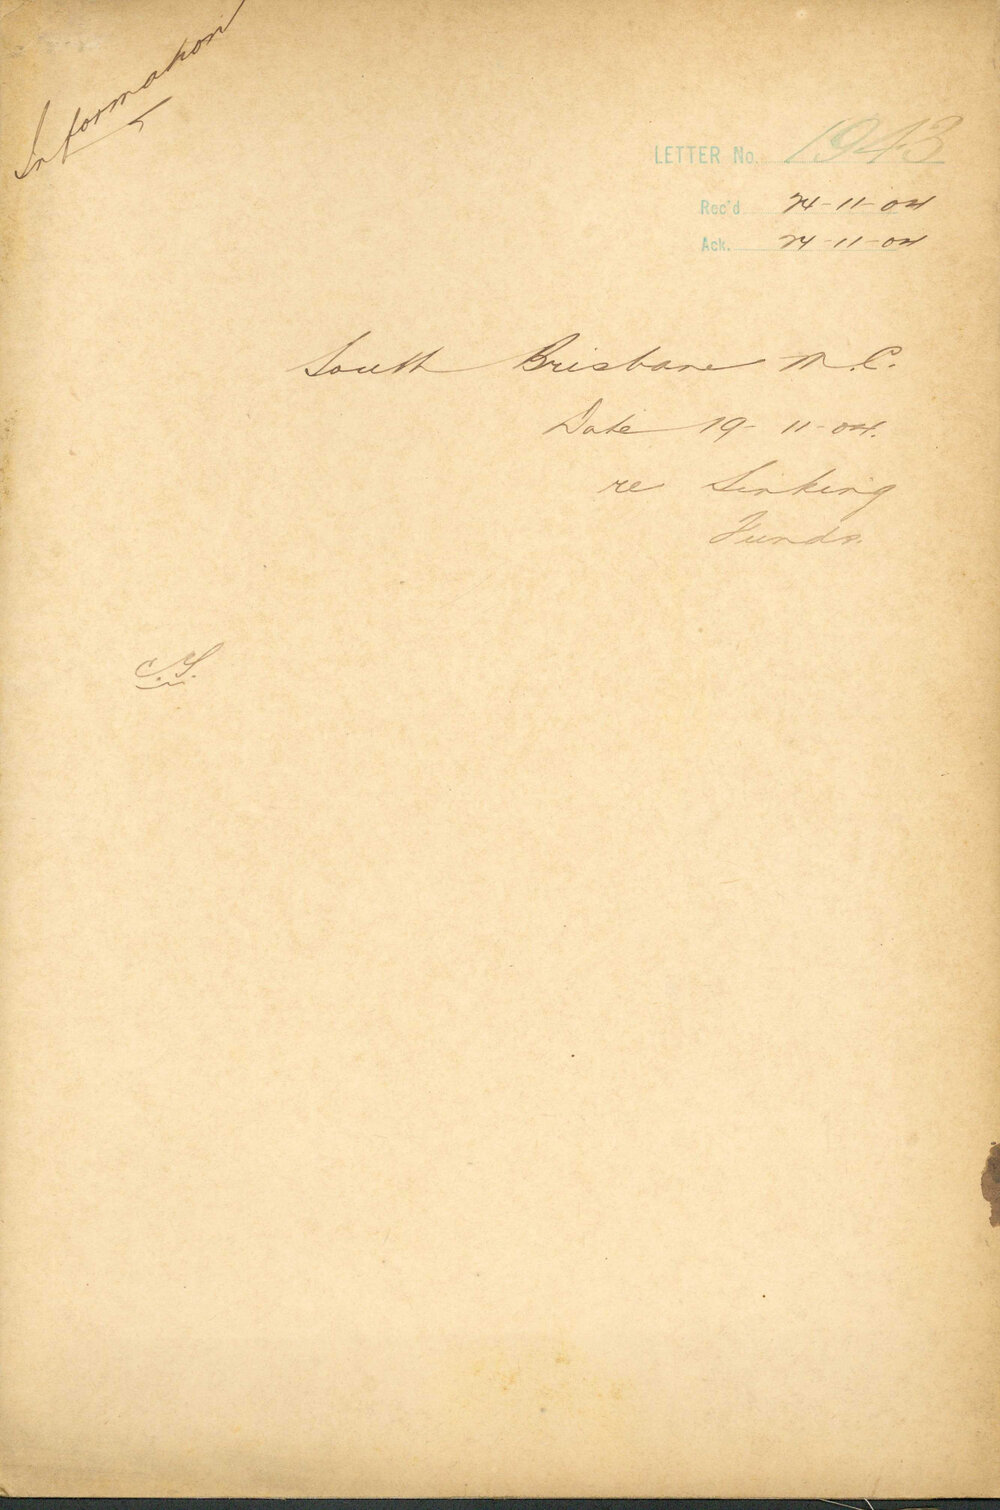 Information
LETTER No. 1943
Rec'd 24-11-04
Ack. 24-11-04
South Brisbane M.C.
Date 19-11-04.
re Sinking
Funds.